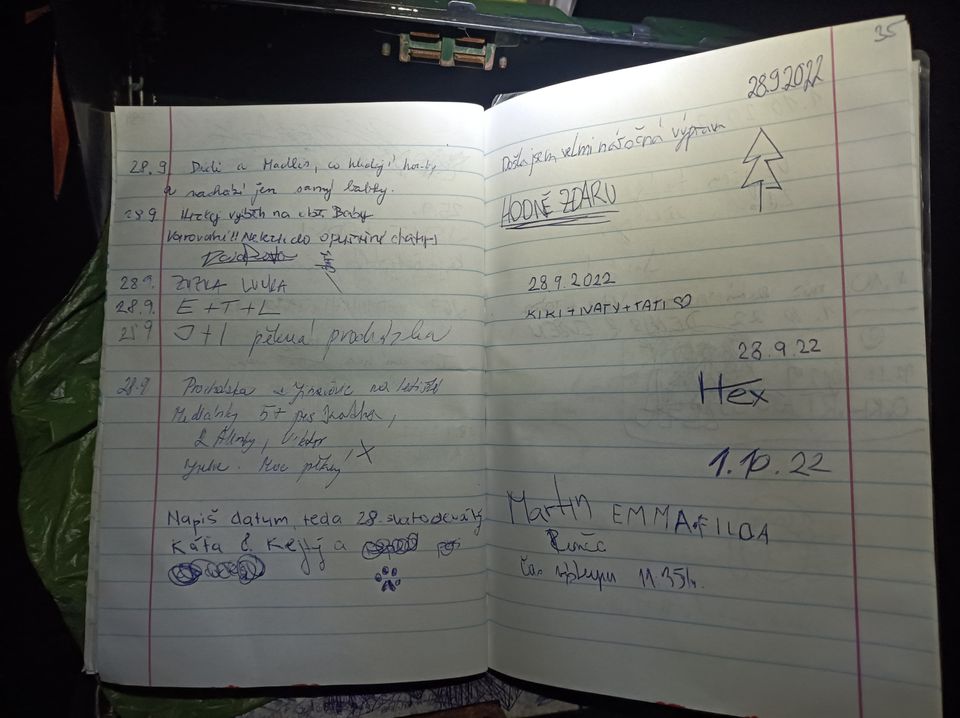 28.9 Dudi a Madlen, co hledají houby
a nachází jen samý babky.
28.9 Hezký výběh na chst. Baby
Varování!! Nelezte do opuštěné chatky
28.9. ZUZKA LUCKA
28.9. E + T + L
28.9 J+I pěkná procházka
28.9 Procházka z Jinačovic na letiště
Medlánky 5+ pes
2 Alenky, Viktor
Moc pěkný X
Napiš datum, teda 28. svatodevátý
Káťa &. Kejlý a
35
28.9.2022
Došla jsem velmi náročná výprava
HODNĚ ZDARU
28.9.2022
KIKI + IVATY + TATI ♡
28.9.22
Hex
1.10.22
Martin EMMA + FILDA
čas výstupu 11.35h.